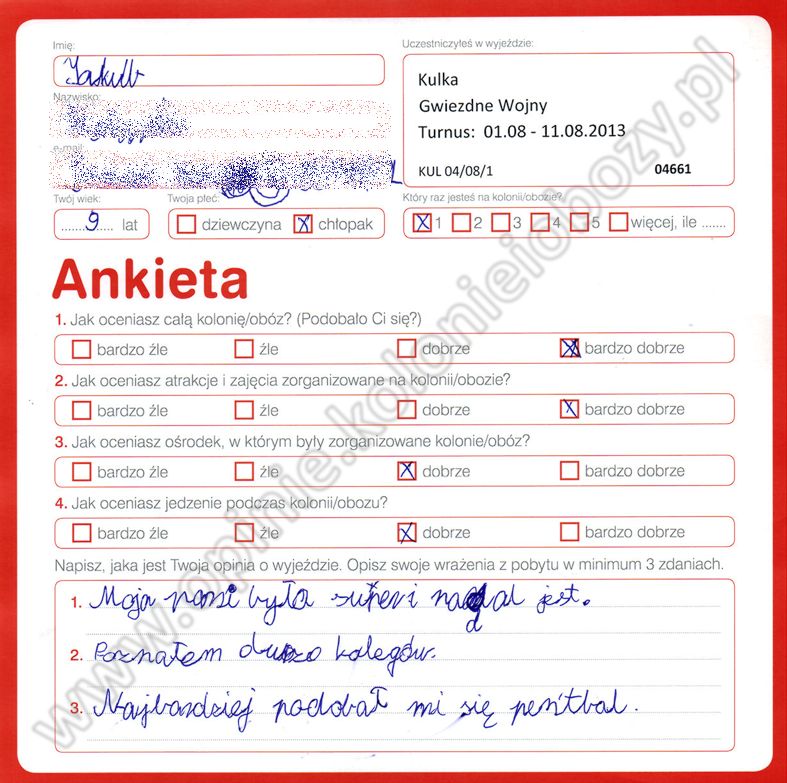 Imię:
Jakub
Nazwisko:
e-mail:
Uczestniczyłeś w wyjeździe:
Kulka
Gwiezdne Wojny
Turnus: 01.08 - 11.08.2013
KUL 04/08/1 04661
Twój wiek: Twoja płeć: Który raz jesteś na kolonii/obozie?
9 lat dziewczyna X chłopak X 1 2 3 4 5 więcej, ile .......
Ankieta
1. Jak oceniasz całą kolonię/obóz? (Podobało Ci się?)
bardzo źle źle dobrze X bardzo dobrze
2. Jak oceniasz atrakcje i zajęcia zorganizowane na kolonii/obozie?
bardzo źle źle dobrze X bardzo dobrze
3. Jak oceniasz ośrodek, w którym były zorganizowane kolonie/obóz?
bardzo źle źle X dobrze bardzo dobrze
4. Jak oceniasz jedzenie podczas kolonii/obozu?
bardzo źle źle X dobrze bardzo dobrze
Napisz, jaka jest Twoja opinia o wyjeździe. Opisz swoje wrażenia z pobytu w minimum 3 zdaniach.
1. Moja pani była super i nadal jest.
2. Poznałem dużo kolegów.
3. Najbardziej podobał mi się pentbal.
www.opinie.kolonieiobozy.pl